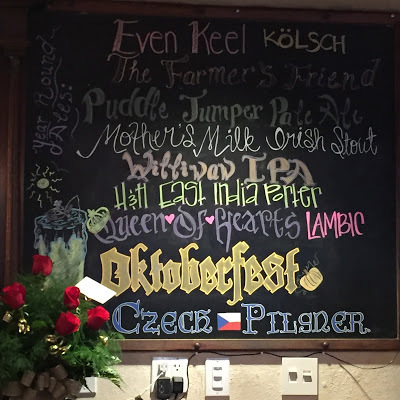 Year Round
Ales:
Even Keel KÖLSCH
The Farmer's Friend
Puddle Jumper Pale Ale
Mother's Milk Irish Stout
Williwaw IPA
East India Porter
Queen Of Hearts LAMBIC
Oktoberfest
CZECH PILSNER